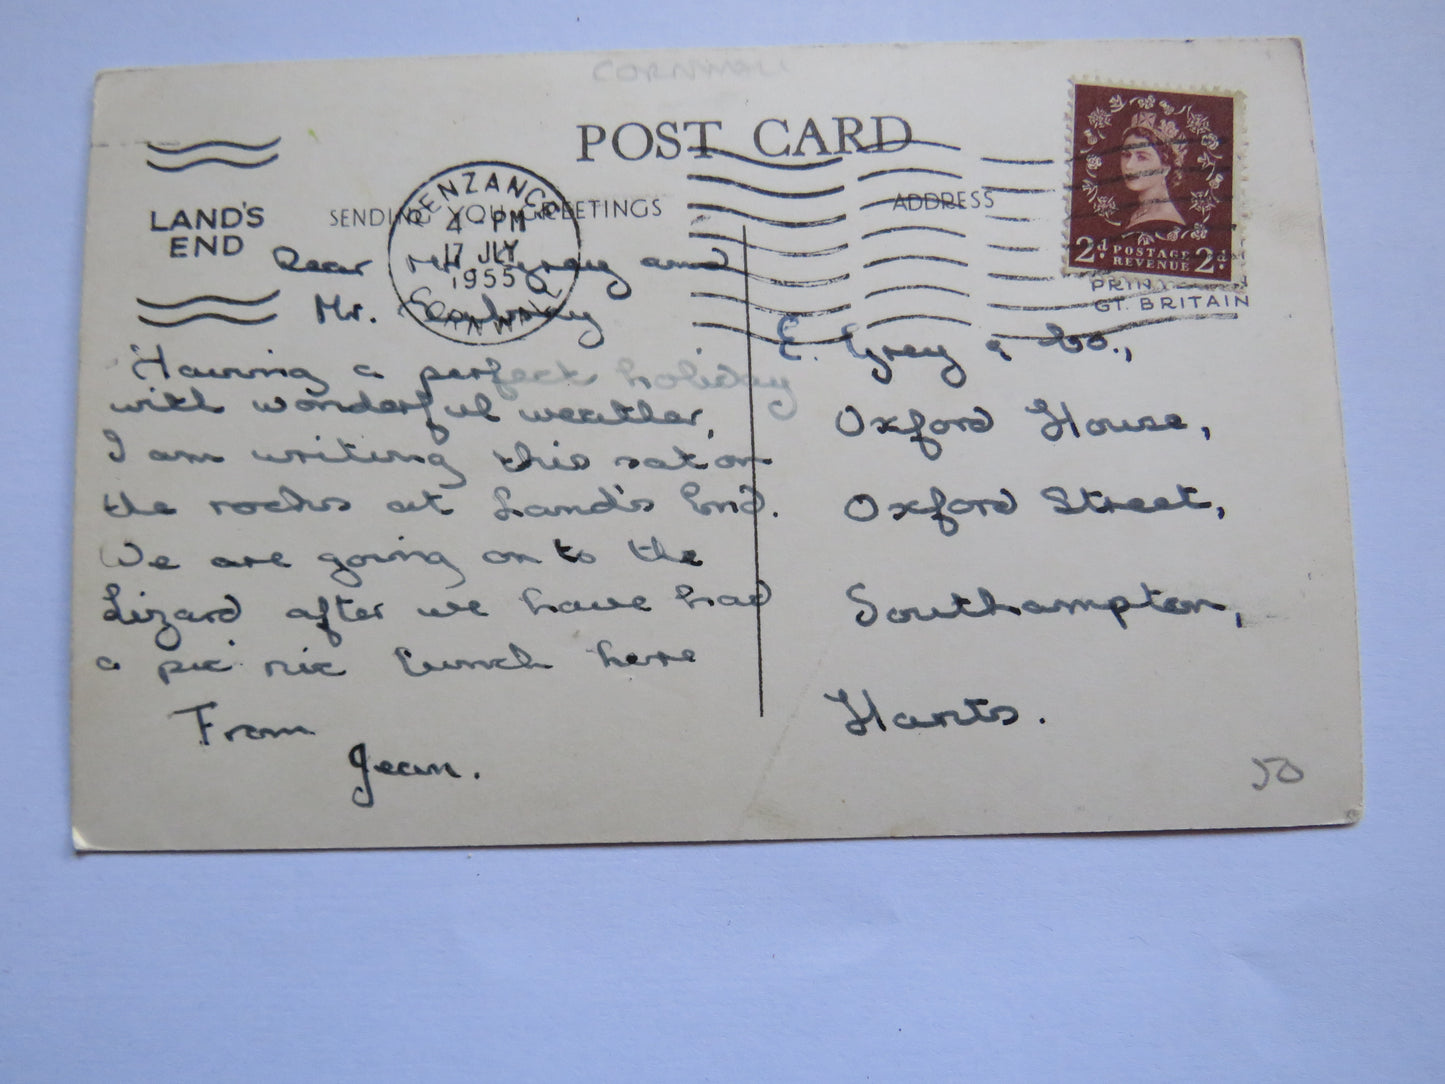 CORNWALL
POST CARD
LAND'S
END
PENZANCE
4 - PM
17 JLY
1955
CORNWALL
SENDING YOU GREETINGS
ADDRESS
2d. POSTAGE REVENUE 2d.
PRIN
GT. BRITAIN
Dear Mr. Grey and
Mr.
Having a perfect holiday
with wonderful weather,
I am writing this sat on
the rocks at Land's End.
We are going on to the
Lizard after we have had
a pic nic lunch here
From
Jean.
E. Grey & Co.,
Oxford House,
Oxford Street,
Southampton,
Hants.
50